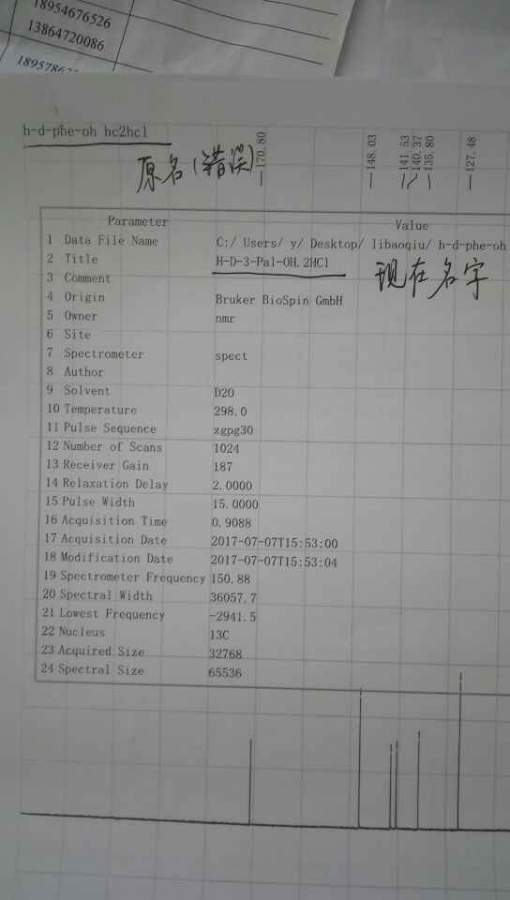 18954676526
13864720086
h-d-phe-oh hc2hcl
原名(错误)
170.80
148.03
141.53
140.37
135.80
127.48
Parameter Value
1 Data File Name C:/ Users/ y/ Desktop/ libaoqiu/ h-d-phe-oh
2 Title H-D-3-Pal-OH.2HCl
现在名字
3 Comment
4 Origin Bruker BioSpin GmbH
5 Owner nmr
6 Site
7 Spectrometer spect
8 Author
9 Solvent D2O
10 Temperature 298.0
11 Pulse Sequence zgpg30
12 Number of Scans 1024
13 Receiver Gain 187
14 Relaxation Delay 2.0000
15 Pulse Width 15.0000
16 Acquisition Time 0.9088
17 Acquisition Date 2017-07-07T15:53:00
18 Modification Date 2017-07-07T15:53:04
19 Spectrometer Frequency 150.88
20 Spectral Width 36057.7
21 Lowest Frequency -2941.5
22 Nucleus 13C
23 Acquired Size 32768
24 Spectral Size 65536